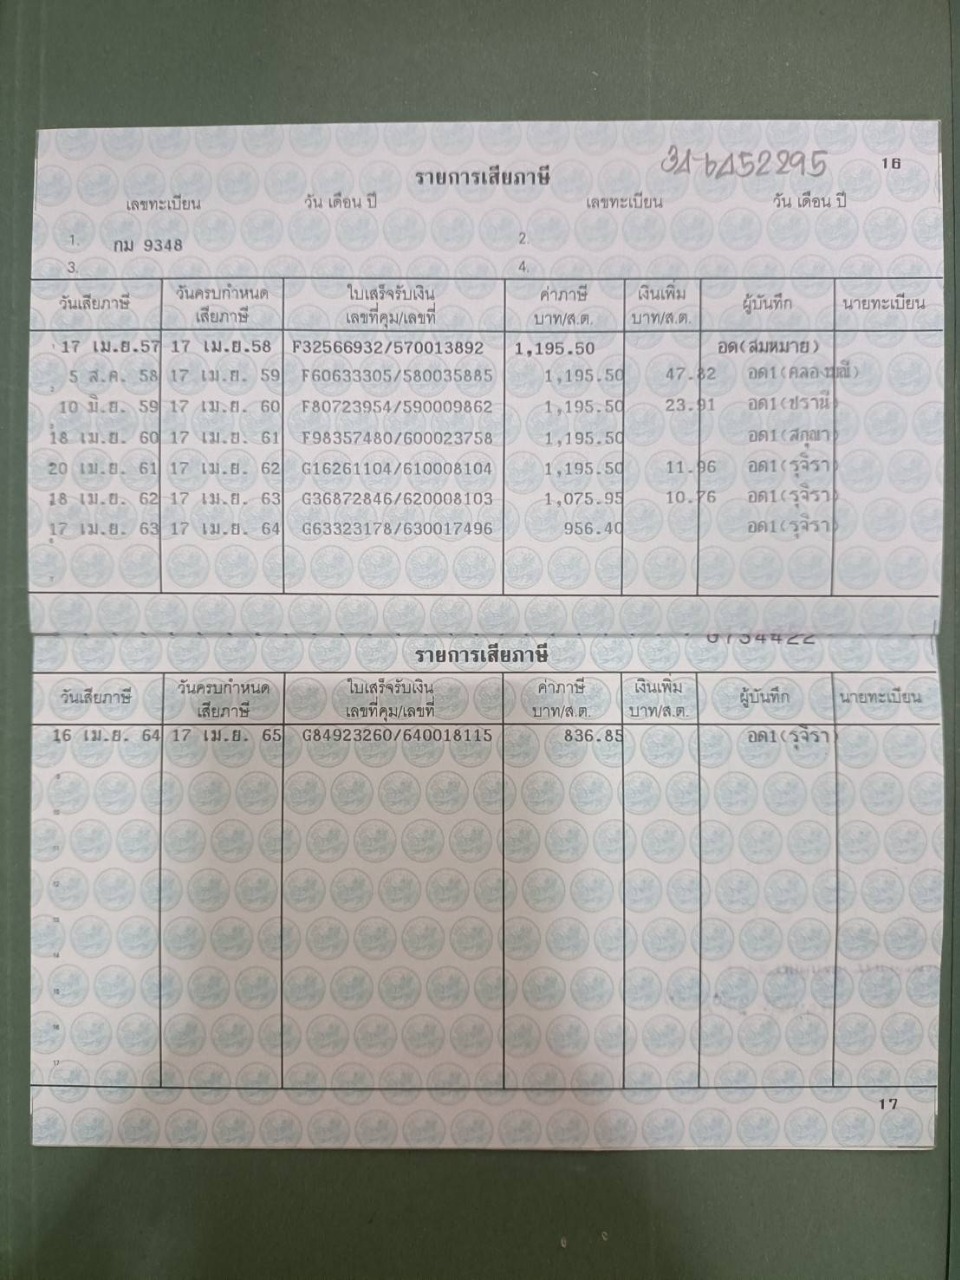 34-6452295 16
รายการเสียภาษี
เลขทะเบียน วัน เดือน ปี เลขทะเบียน วัน เดือน ปี
1. กม 9348 2.
3. 4.
วันเสียภาษี วันครบกำหนด เสียภาษี ใบเสร็จรับเงิน เลขที่คุม/เลขที่ ค่าภาษี บาท/ส.ต. เงินเพิ่ม บาท/ส.ต. ผู้บันทึก นายทะเบียน
17 เม.ย.57 17 เม.ย.58 F32566932/570013892 1,195.50 อด(สมหมาย)
5 ส.ค. 58 17 เม.ย. 59 F60633305/580035885 1,195.50 47.82 อด1(คลองมณี)
10 มิ.ย. 59 17 เม.ย. 60 F80723954/590009862 1,195.50 23.91 อด1(ปรานี)
18 เม.ย. 60 17 เม.ย. 61 F98357480/600023758 1,195.50 อด1(สกุณา)
20 เม.ย. 61 17 เม.ย. 62 G16261104/610008104 1,195.50 11.96 อด1(รุจิรา)
18 เม.ย. 62 17 เม.ย. 63 G36872846/620008103 1,075.95 10.76 อด1(รุจิรา)
17 เม.ย. 63 17 เม.ย. 64 G63323178/630017496 956.40 อด1(รุจิรา)
0734422
รายการเสียภาษี
วันเสียภาษี วันครบกำหนด เสียภาษี ใบเสร็จรับเงิน เลขที่คุม/เลขที่ ค่าภาษี บาท/ส.ต. เงินเพิ่ม บาท/ส.ต. ผู้บันทึก นายทะเบียน
16 เม.ย. 64 17 เม.ย. 65 G84923260/640018115 836.85 อด1(รุจิรา)
17